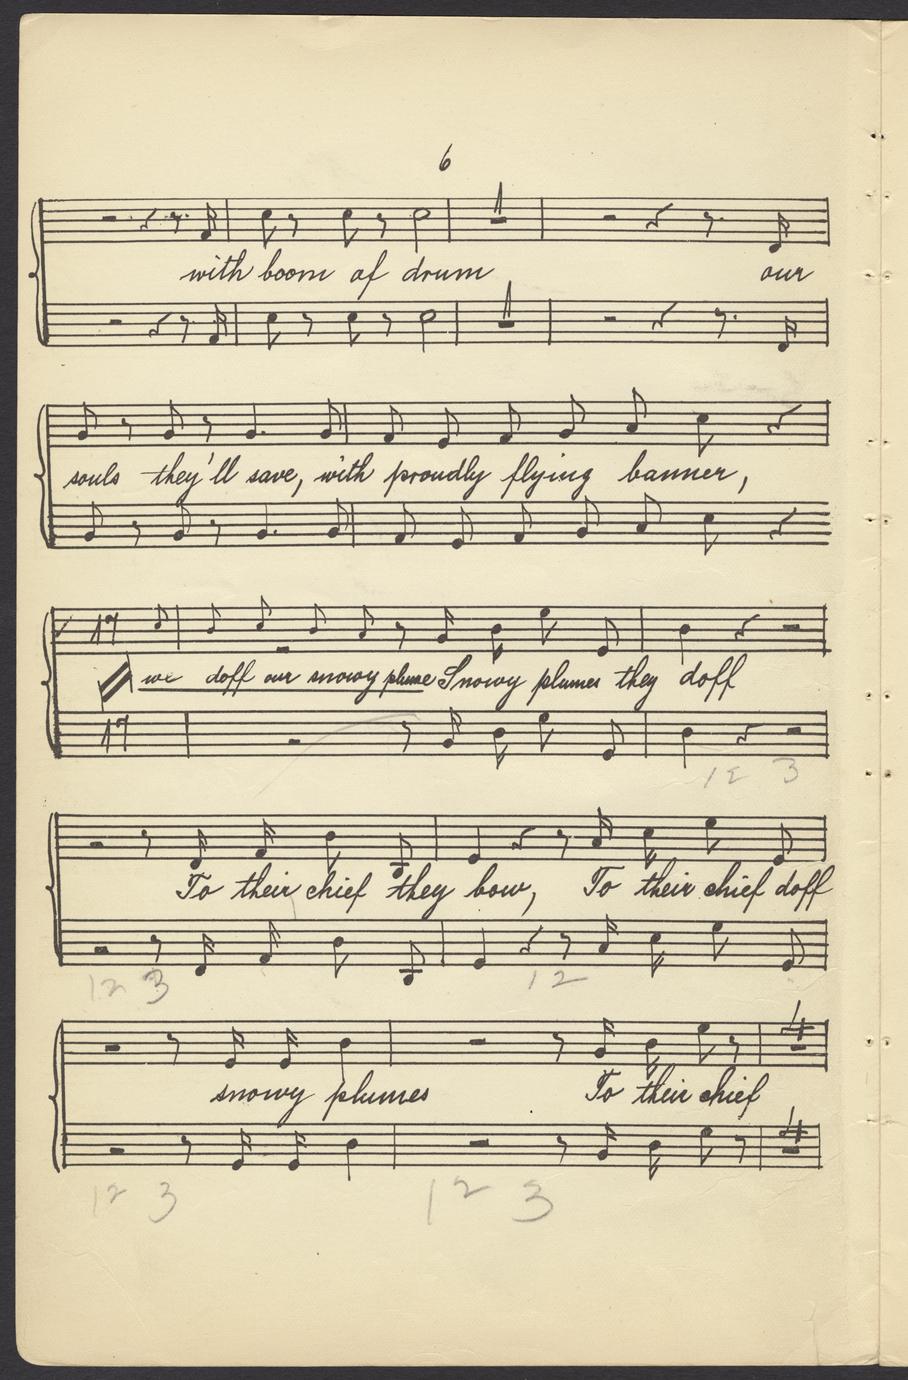 6
1
with boom of drum our
1
souls they'll save, with proudly flying banner,
17
we doff our snowy plume Snowy plumes they doff
17
12 3
To their chief they bow, To their chief doff
12 3 12
4
snowy plumes To their chief
4
12 3 12 3